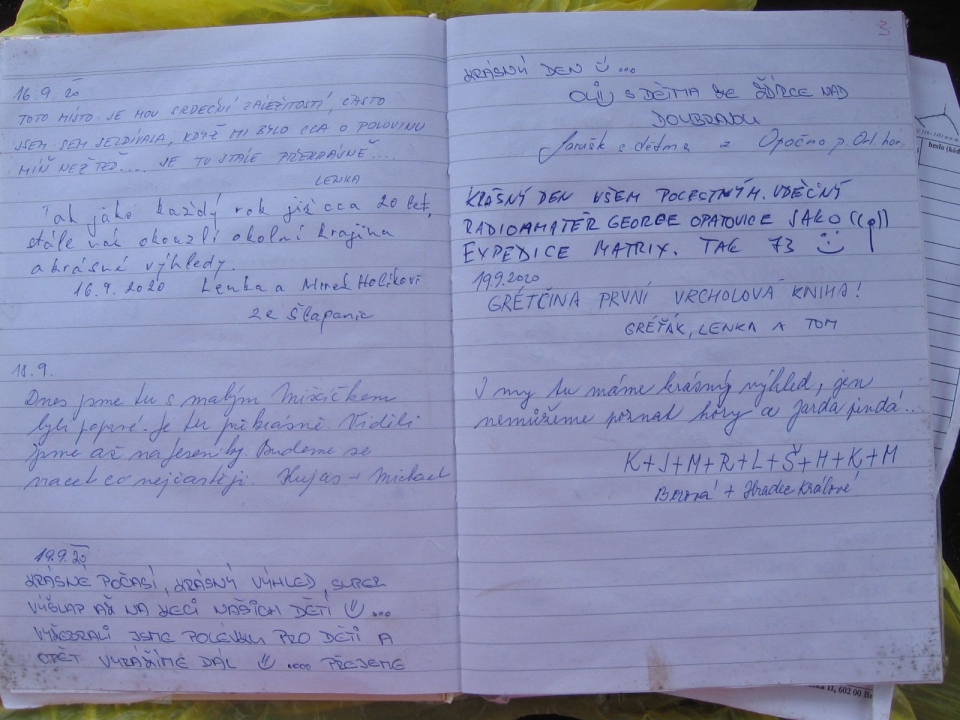 16.9.20
TOTO MÍSTO JE MOU SRDEČNÍ ZÁLEŽITOSTÍ, ČASTO
JSEM SEM JEZDÍVALA, KDYŽ MI BYLO CCA O POLOVINU
MÍŇ NEŽ TEĎ.... JE TU STÁLE PŘEKRÁSNĚ....
LENKA
Tak jako každý rok již cca 20 let,
stále nás okouzlí okolní krajina
a krásné výhledy.
16.9.2020 Lenka a Mirek Holíkovi
ze Štěpanic
18.9.
Dnes jsme tu s malým
byli poprvé. Je tu překrásně. Viděli
jsme až na Jeseníky. Budeme se
vracet co nejčastěji. + Michael
19.9.20
KRÁSNÉ POČASÍ, KRÁSNÝ VÝHLED, SUPER
VÝŠLAP AŽ NA KECÍ NAŠICH DĚTÍ ...
JSME POLÉVKU PRO DĚTI A
OPĚT VYRÁŽÍME DÁL .... PŘEJEME
3
KRÁSNÝ DEN ...
S DĚTMA ZE ŽDÍRCE NAD
DOUBRAVOU
s dětma z Opočno p. Orl. hor.
KRÁSNÝ DEN VŠEM POCESTNÝM. VDĚČNÝ
RADIOAMATÉR GEORGE OPATOVICE JAKO ((p))
EXPEDICE MATRIX. TAK 73
19.9.2020
GRÉTČINA PRVNÍ VRCHOLOVÁ KNIHA!
GRÉŤÁK, LENKA A TOM
I my tu máme krásný výhled, jen
nemůžeme poznat hory a Jarda jindá...
K+J+M+R+L+Š+H+K+M
+ Hradec Králové
heslo
602 00